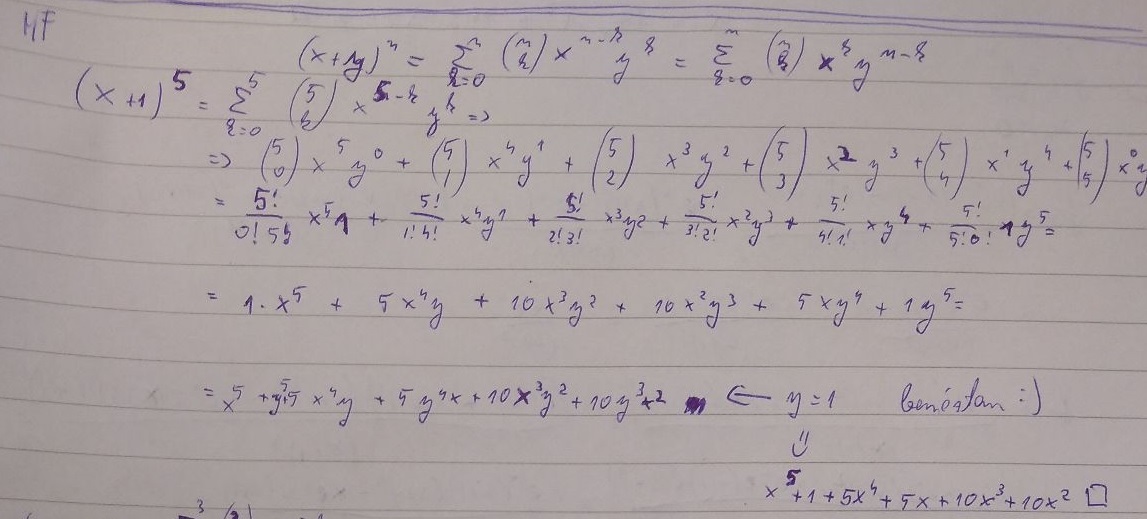 HF
(x+y)^n = Σ_{k=0}^{n} (n k) x^{n-k} y^k = Σ_{k=0}^{n} (n k) x^k y^{n-k}
(x+1)^5 = Σ_{k=0}^{5} (5 k) x^{5-k} y^k =>
=> (5 0) x^5 y^0 + (5 1) x^4 y^1 + (5 2) x^3 y^2 + (5 3) x^2 y^3 + (5 4) x^1 y^4 + (5 5) x^0 y
= 5!/0!5! x^5 1 + 5!/1!4! x^4 y^1 + 5!/2!3! x^3 y^2 + 5!/3!2! x^2 y^3 + 5!/4!1! x y^4 + 5!/5!0! 1 y^5 =
= 1·x^5 + 5x^4y + 10x^3y^2 + 10x^2y^3 + 5xy^4 + 1y^5 =
= x^5 + y^5 + 5x^4y + 5y^4x + 10x^3y^2 + 10y^3x^2 ← y=1 :)
x^5+1+5x^4+5x+10x^3+10x^2 □